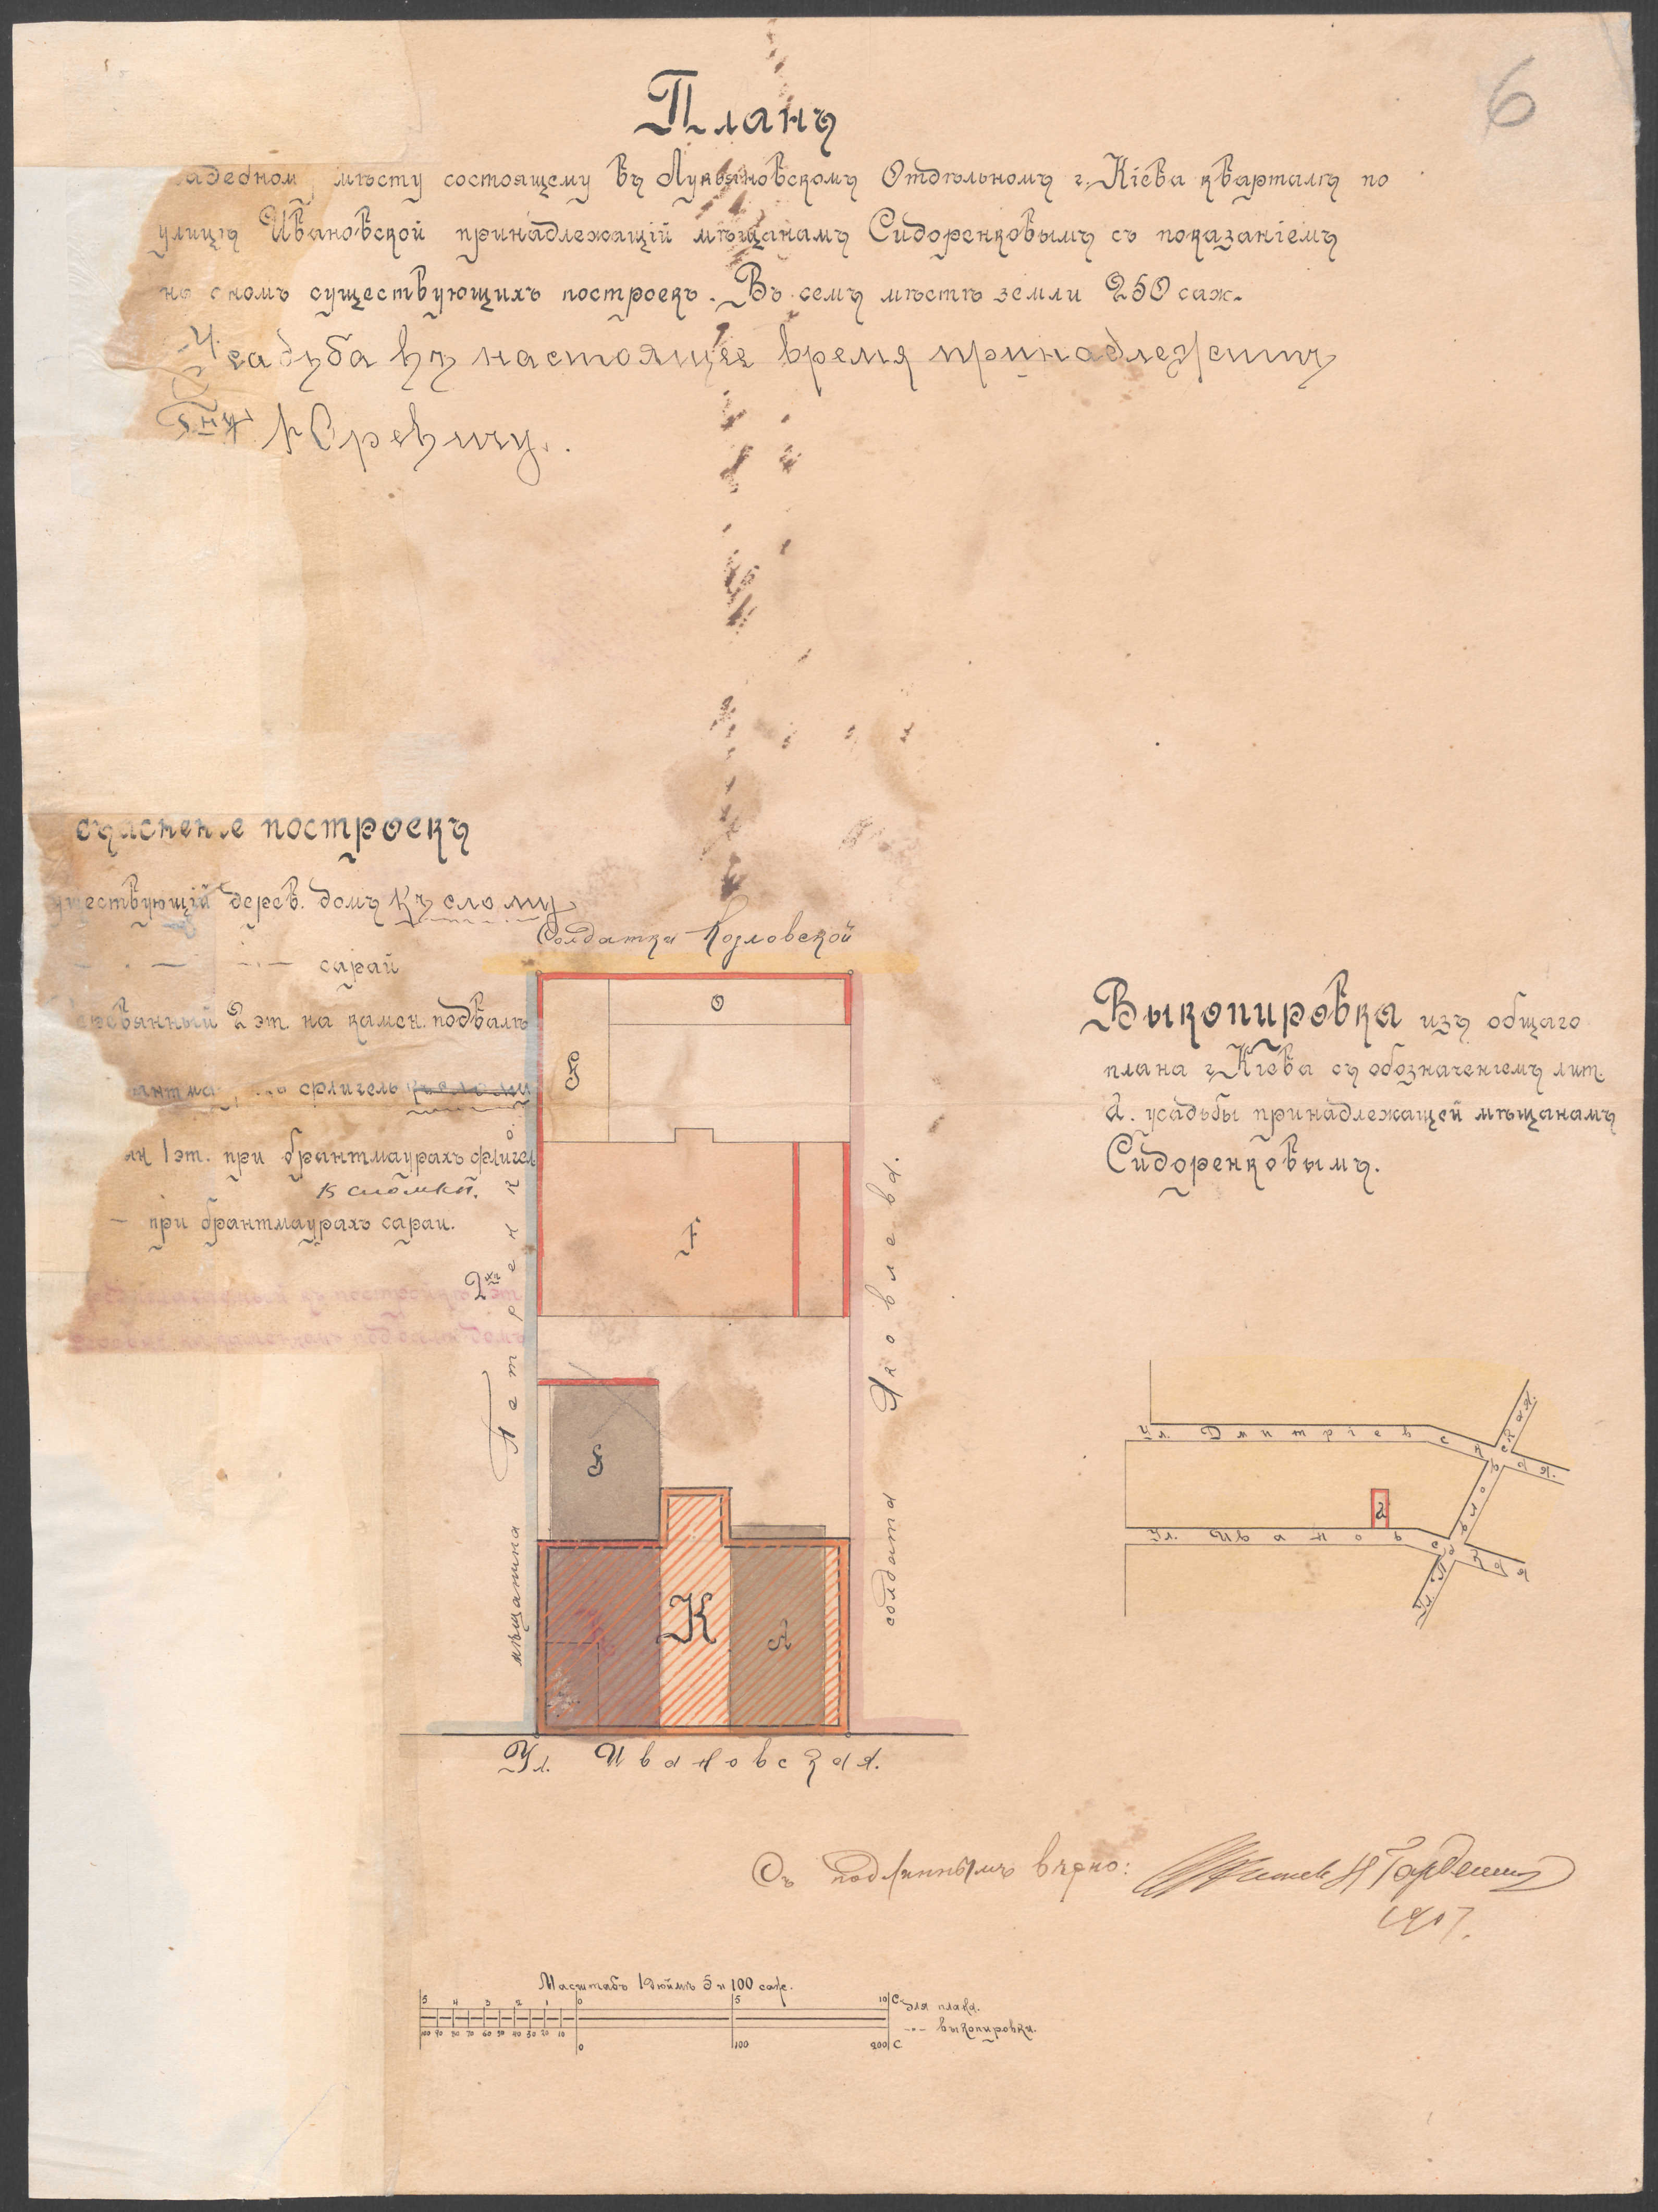 6
Планъ
мѣсту состоящему въ Лукьяновскомъ Отдѣльномъ г. Кіева кварталѣ по
улицѣ Ивановской принадлежащій мѣщанамъ Сидоренковымъ съ показаніемъ
на ономъ существующихъ построекъ. Въ семъ мѣстѣ земли 250 саж.
Усадьба въ настоящее время принадлежитъ
Юревичу.
построекъ
дерев. домъ къ слому
— . — — . — сарай
2 эт. на камен. подвалѣ
флигель къ слому
1 эт. при брантмаурахъ флигел
к сломки.
— при брантмаурахъ сараи.
Солдатки Козловской
O
G
F
G
K
A
мѣщанина Петренко.
солдата Яковлева.
Ул. Ивановская.
Выкопировка изъ общаго
плана г. Кіева съ обозначеніемъ лит.
А. усадьбы принадлежащей мѣщанамъ
Сидоренковымъ.
Ул. Дмитріевская.
A
Ул. Ивановская
Ул. Павловская.
Съ подлиннымъ вѣрно:
1907.
Масштабъ 1 дюймъ 5 и 100 саж.
5 4 3 2 1 0 5 10 С. Для плана.
100 90 80 70 60 50 40 30 20 10 -"- выкопировки.
0 100 200 С